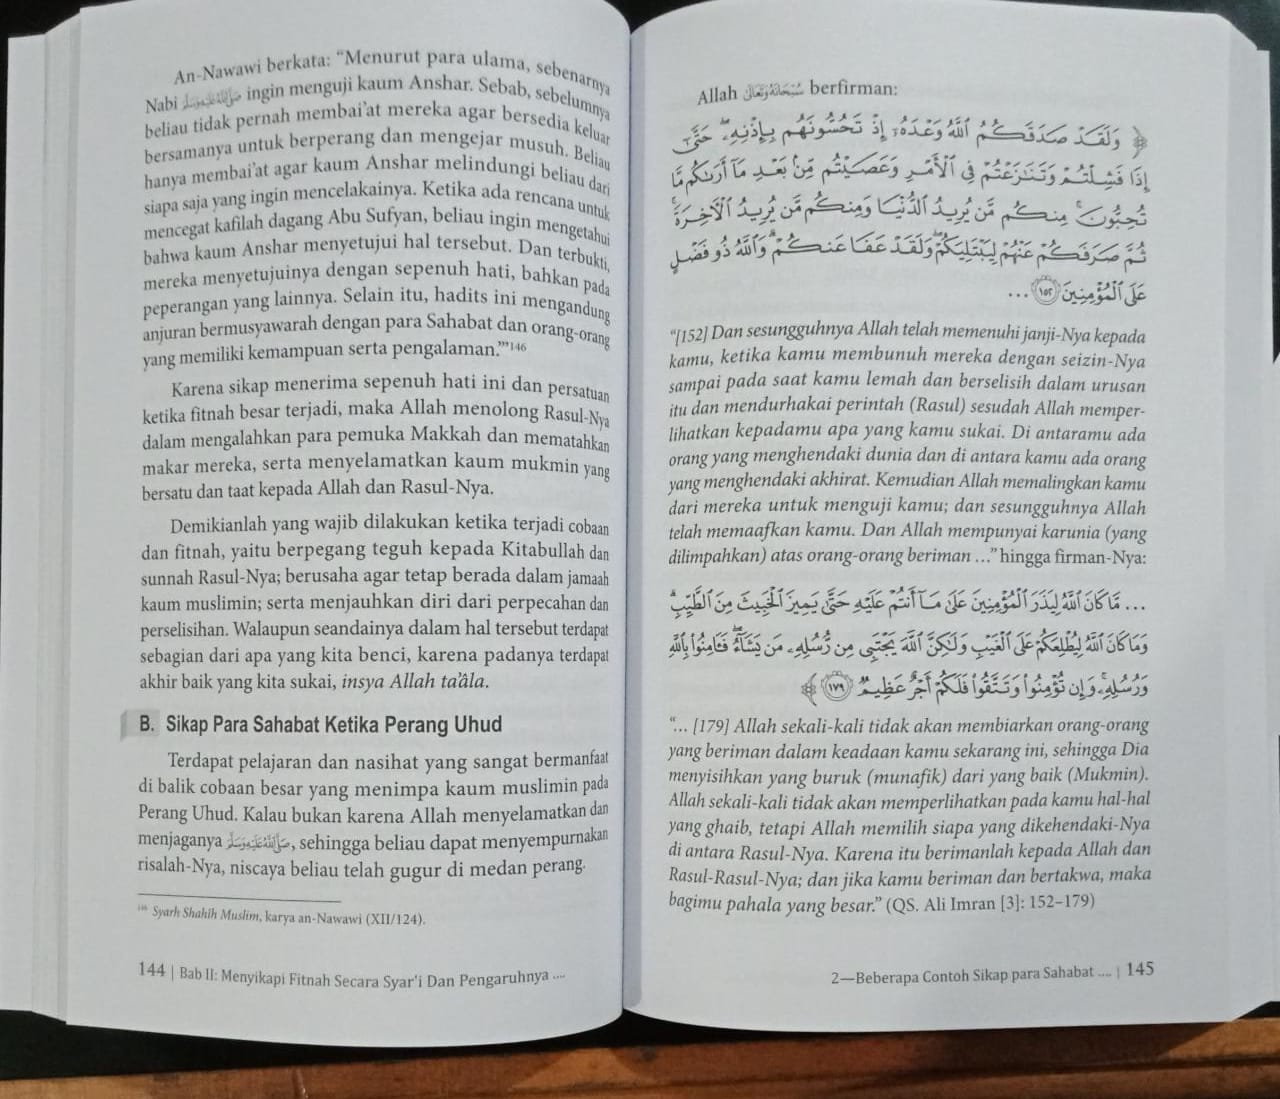 An-Nawawi berkata: “Menurut para ulama, sebenarnya
Nabi ﷺ ingin menguji kaum Anshar. Sebab, sebelumnya
beliau tidak pernah membai’at mereka agar bersedia keluar
bersamanya untuk berperang dan mengejar musuh. Beliau
hanya membai’at agar kaum Anshar melindungi beliau dari
siapa saja yang ingin mencelakainya. Ketika ada rencana untuk
mencegat kafilah dagang Abu Sufyan, beliau ingin mengetahui
bahwa kaum Anshar menyetujui hal tersebut. Dan terbukti,
mereka menyetujuinya dengan sepenuh hati, bahkan pada
peperangan yang lainnya. Selain itu, hadits ini mengandung
anjuran bermusyawarah dengan para Sahabat dan orang-orang
yang memiliki kemampuan serta pengalaman.’”146
Karena sikap menerima sepenuh hati ini dan persatuan
ketika fitnah besar terjadi, maka Allah menolong Rasul-Nya
dalam mengalahkan para pemuka Makkah dan mematahkan
makar mereka, serta menyelamatkan kaum mukmin yang
bersatu dan taat kepada Allah dan Rasul-Nya.
Demikianlah yang wajib dilakukan ketika terjadi cobaan
dan fitnah, yaitu berpegang teguh kepada Kitabullah dan
sunnah Rasul-Nya; berusaha agar tetap berada dalam jamaah
kaum muslimin; serta menjauhkan diri dari perpecahan dan
perselisihan. Walaupun seandainya dalam hal tersebut terdapat
sebagian dari apa yang kita benci, karena padanya terdapat
akhir baik yang kita sukai, insya Allah ta’âla.
B. Sikap Para Sahabat Ketika Perang Uhud
Terdapat pelajaran dan nasihat yang sangat bermanfaat
di balik cobaan besar yang menimpa kaum muslimin pada
Perang Uhud. Kalau bukan karena Allah menyelamatkan dan
menjaganya ﷺ, sehingga beliau dapat menyempurnakan
risalah-Nya, niscaya beliau telah gugur di medan perang.
146 Syarh Shahih Muslim, karya an-Nawawi (XII/124).
144 | Bab II: Menyikapi Fitnah Secara Syar’i Dan Pengaruhnya ....
Allah سُبْحَانَهُ وَتَعَالَى berfirman:
﴿ وَلَقَدْ صَدَقَكُمُ ٱللَّهُ وَعْدَهُۥٓ إِذْ تَحُسُّونَهُم بِإِذْنِهِۦ ۖ حَتَّىٰٓ
إِذَا فَشِلْتُمْ وَتَنَٰزَعْتُمْ فِى ٱلْأَمْرِ وَعَصَيْتُم مِّنۢ بَعْدِ مَآ أَرَىٰكُم مَّا
تُحِبُّونَ ۚ مِنكُم مَّن يُرِيدُ ٱلدُّنْيَا وَمِنكُم مَّن يُرِيدُ ٱلْءَاخِرَةَ ۚ
ثُمَّ صَرَفَكُمْ عَنْهُمْ لِيَبْتَلِيَكُمْ ۖ وَلَقَدْ عَفَا عَنكُمْ ۗ وَٱللَّهُ ذُو فَضْلٍ
عَلَى ٱلْمُؤْمِنِينَ ١٥٢ ...
“[152] Dan sesungguhnya Allah telah memenuhi janji-Nya kepada
kamu, ketika kamu membunuh mereka dengan seizin-Nya
sampai pada saat kamu lemah dan berselisih dalam urusan
itu dan mendurhakai perintah (Rasul) sesudah Allah memper-
lihatkan kepadamu apa yang kamu sukai. Di antaramu ada
orang yang menghendaki dunia dan di antara kamu ada orang
yang menghendaki akhirat. Kemudian Allah memalingkan kamu
dari mereka untuk menguji kamu; dan sesungguhnya Allah
telah memaafkan kamu. Dan Allah mempunyai karunia (yang
dilimpahkan) atas orang-orang beriman ...” hingga firman-Nya:
... مَّا كَانَ ٱللَّهُ لِيَذَرَ ٱلْمُؤْمِنِينَ عَلَىٰ مَآ أَنتُمْ عَلَيْهِ حَتَّىٰ يَمِيزَ ٱلْخَبِيثَ مِنَ ٱلطَّيِّبِ ۗ
وَمَا كَانَ ٱللَّهُ لِيُطْلِعَكُمْ عَلَى ٱلْغَيْبِ وَلَٰكِنَّ ٱللَّهَ يَجْتَبِى مِن رُّسُلِهِۦ مَن يَشَآءُ ۖ فَـَٔامِنُوا۟ بِٱللَّهِ
وَرُسُلِهِۦ ۚ وَإِن تُؤْمِنُوا۟ وَتَتَّقُوا۟ فَلَكُمْ أَجْرٌ عَظِيمٌ ١٧٩ ﴾
“... [179] Allah sekali-kali tidak akan membiarkan orang-orang
yang beriman dalam keadaan kamu sekarang ini, sehingga Dia
menyisihkan yang buruk (munafik) dari yang baik (Mukmin).
Allah sekali-kali tidak akan memperlihatkan pada kamu hal-hal
yang ghaib, tetapi Allah memilih siapa yang dikehendaki-Nya
di antara Rasul-Nya. Karena itu berimanlah kepada Allah dan
Rasul-Rasul-Nya; dan jika kamu beriman dan bertakwa, maka
bagimu pahala yang besar.” (QS. Ali Imran [3]: 152–179)
2—Beberapa Contoh Sikap para Sahabat .... | 145